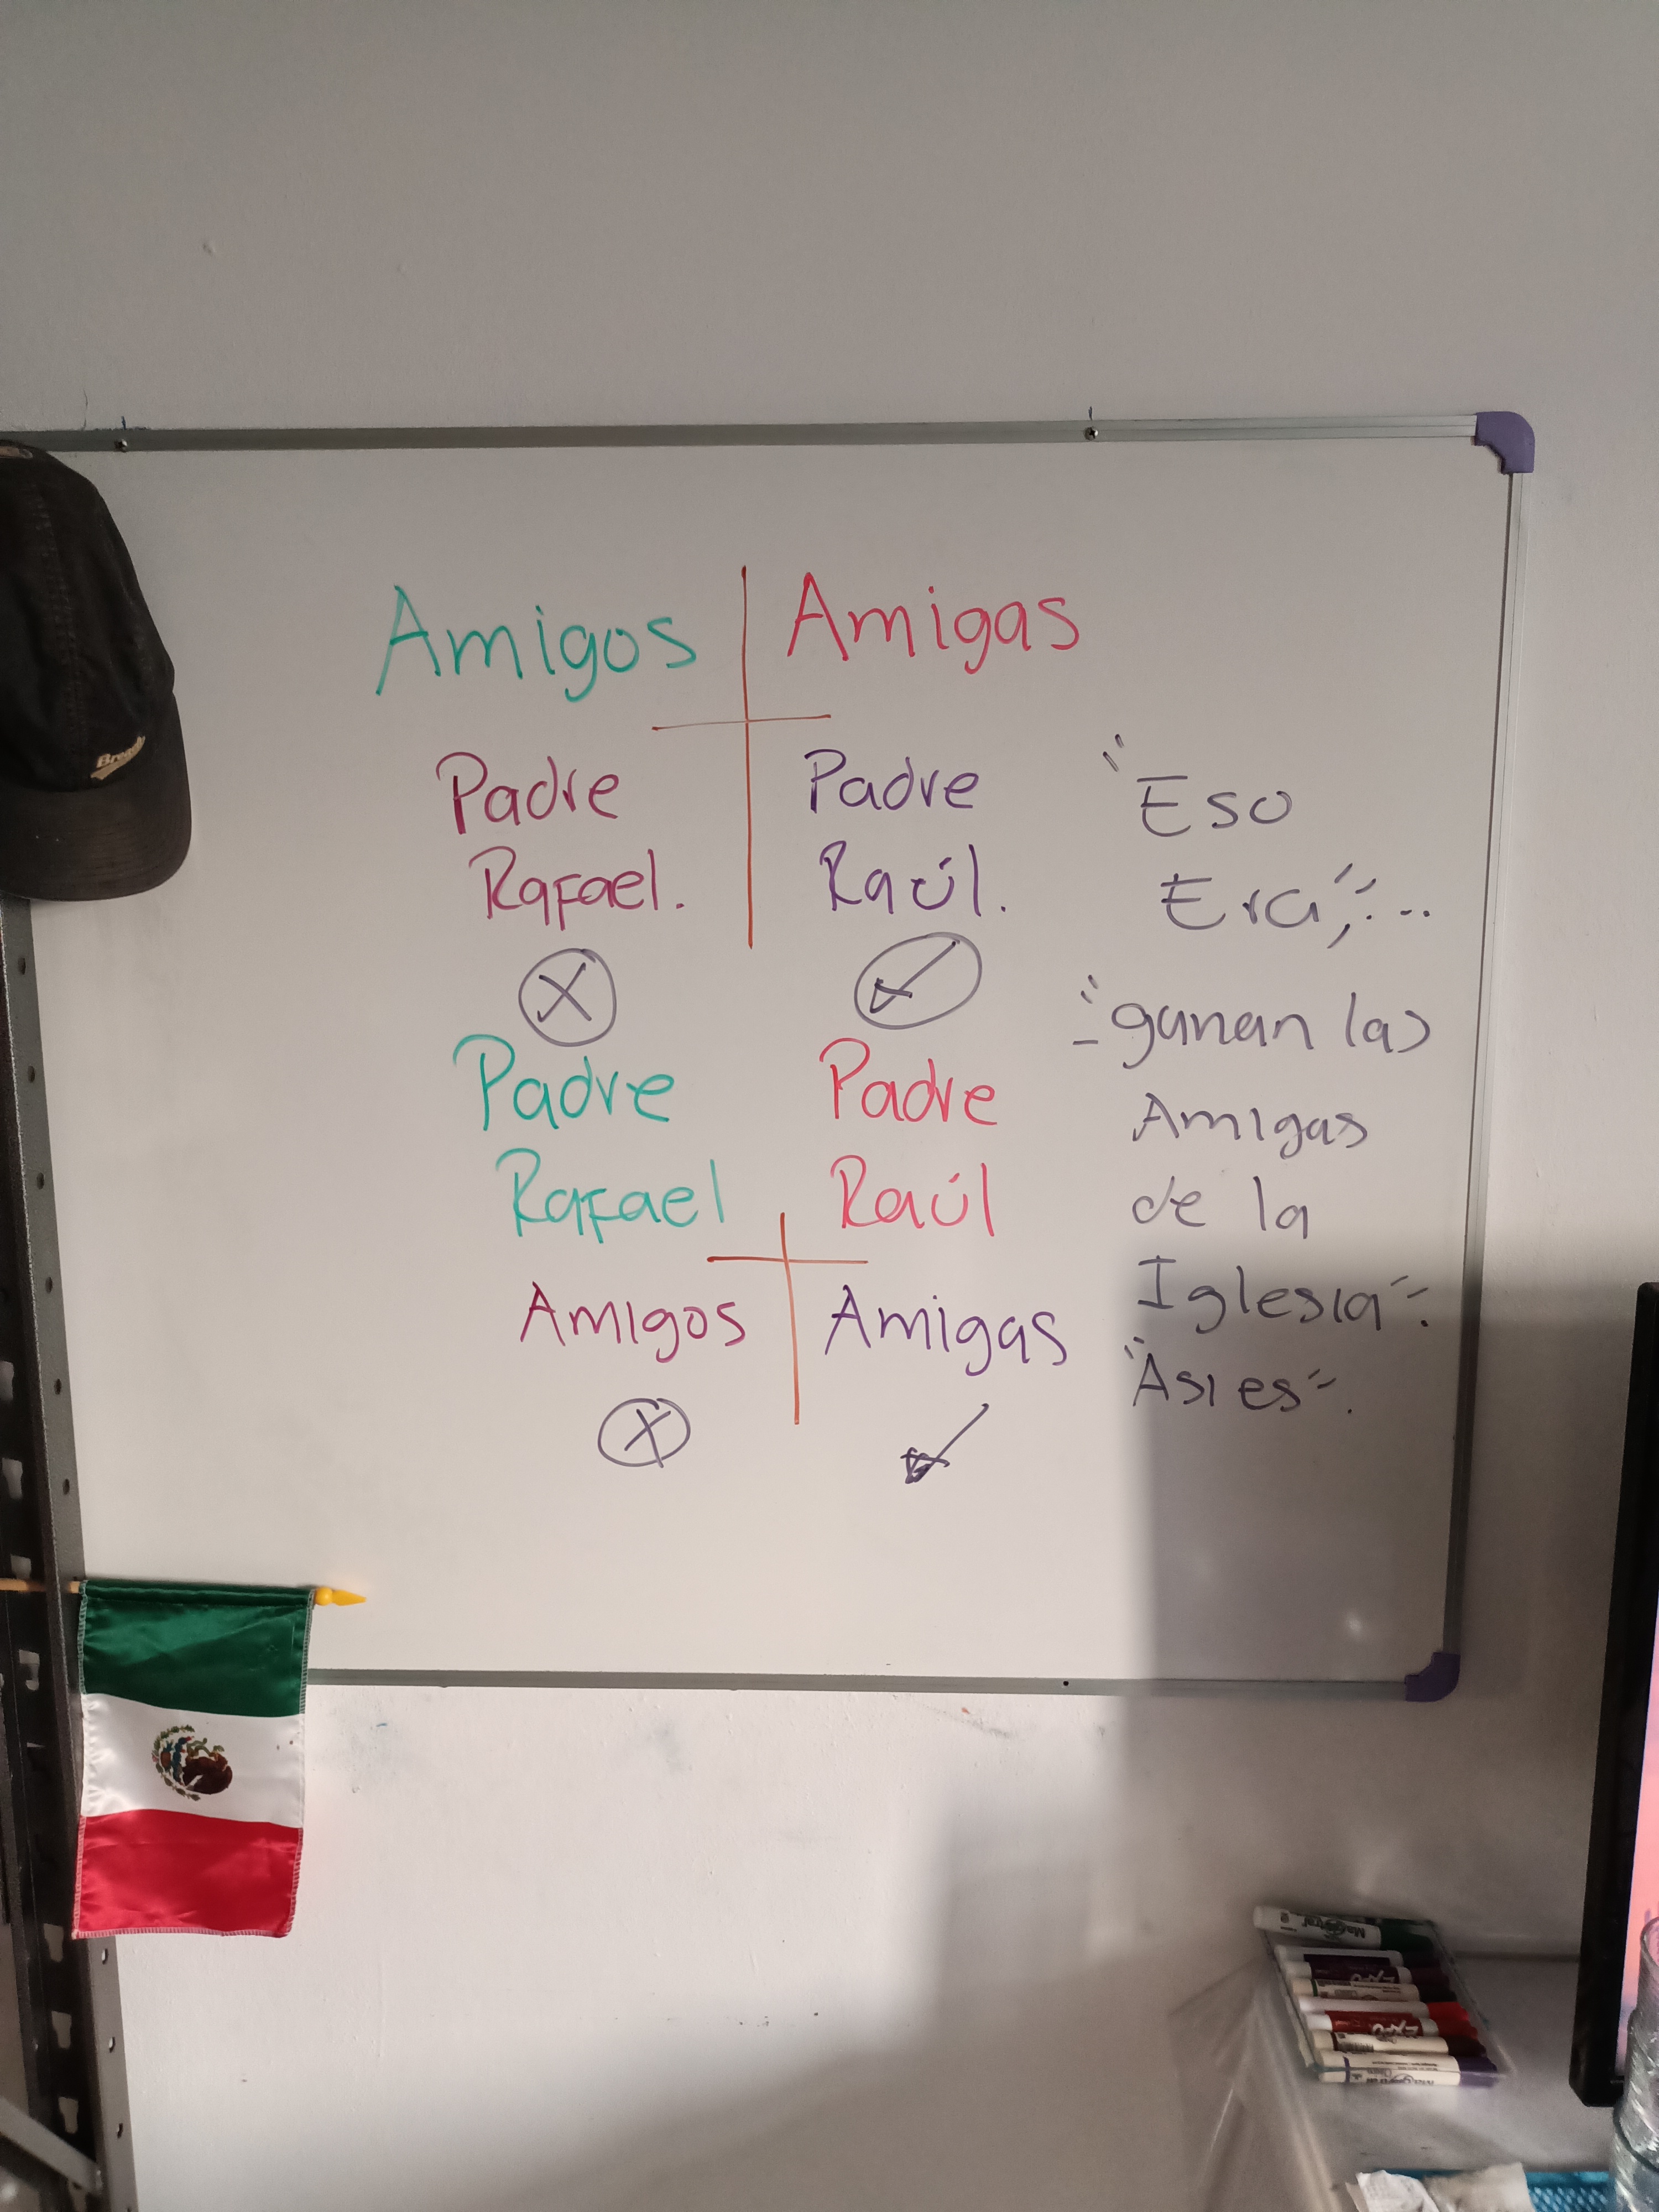 Amigos Amigas
Padre Padre
Rafael. Raúl.
Padre Padre
Rafael Raúl
Amigos Amigas
"Eso
Era",...
"ganan las
Amigas
de la
Iglesia".
"Asi es".